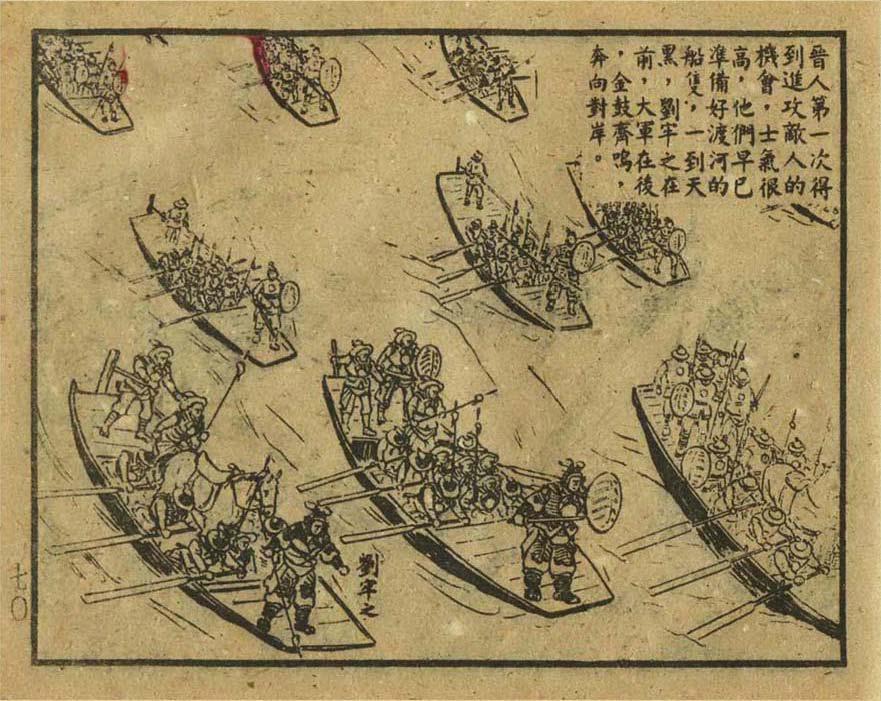 晉人第一次得
到進攻敵人的
機會，士氣很
高，他們早已
準備好渡河的
船隻，一到天
黑，劉牢之在
前，大軍在後
，金鼓齊鳴，
奔向對岸。
劉牢之
七〇